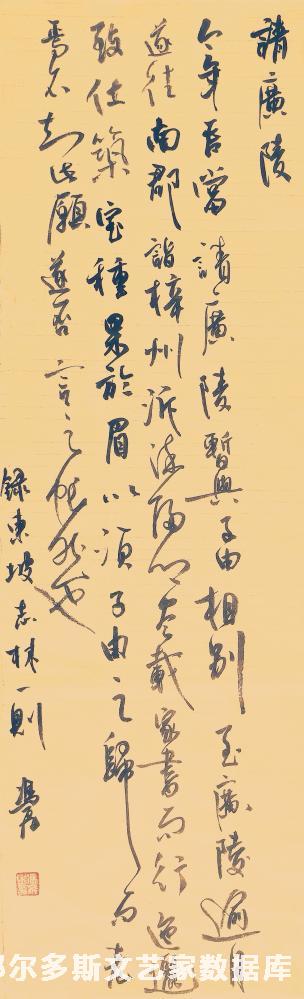 請廣陵
今年吾當請廣陵暫與子由相別至廣陵逾月
遂往南郡詣梓州泝流歸鄉盡載家書而行迤邐
致仕築室種果於眉以須子由之歸而老
焉不知此願遂否言之悵然也
錄東坡志林一則
尔多斯文艺家数据库